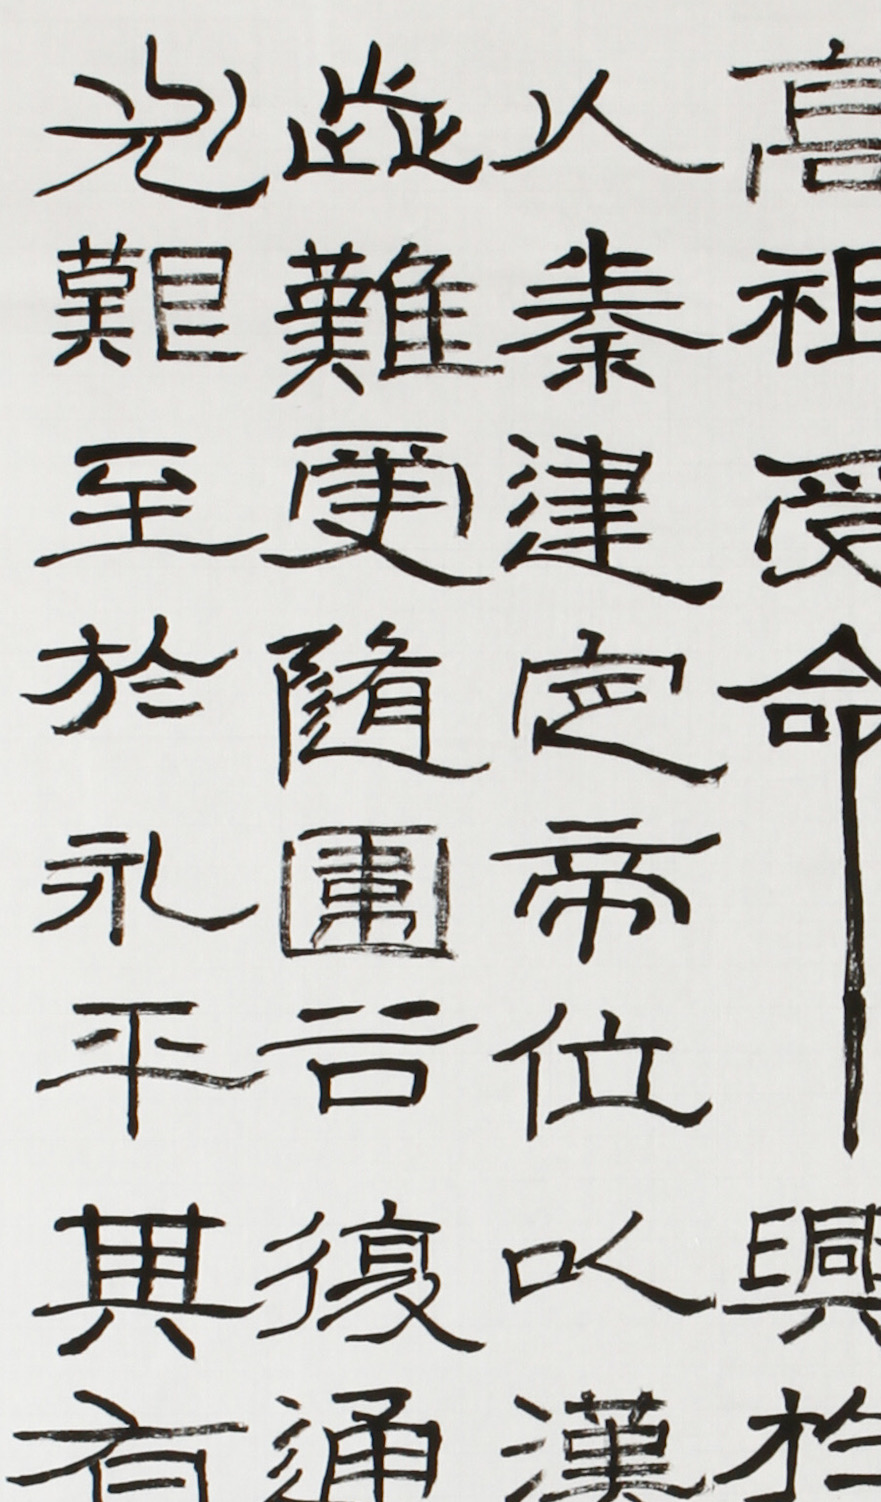 高祖受命興於
入秦建定帝位以漢
歮難更隨圍谷復通
尤艱至於永平其有